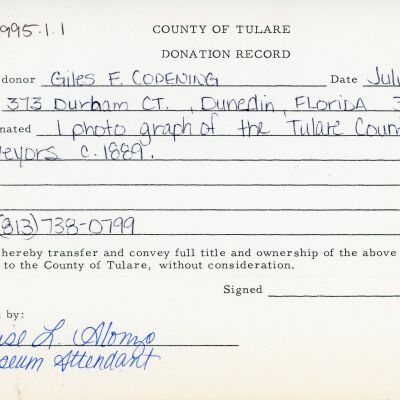 995.1.1
COUNTY OF TULARE
DONATION RECORD
donor Giles F. Copening Date Jul
373 Durham CT., Dunedin, Florida 3
nated 1 photograph of the Tulare Coun
veyors c. 1889.
(813) 738-0799
hereby transfer and convey full title and ownership of the above
to the County of Tulare, without consideration.
Signed
by:
ise L. Alonzo
seum Attendant